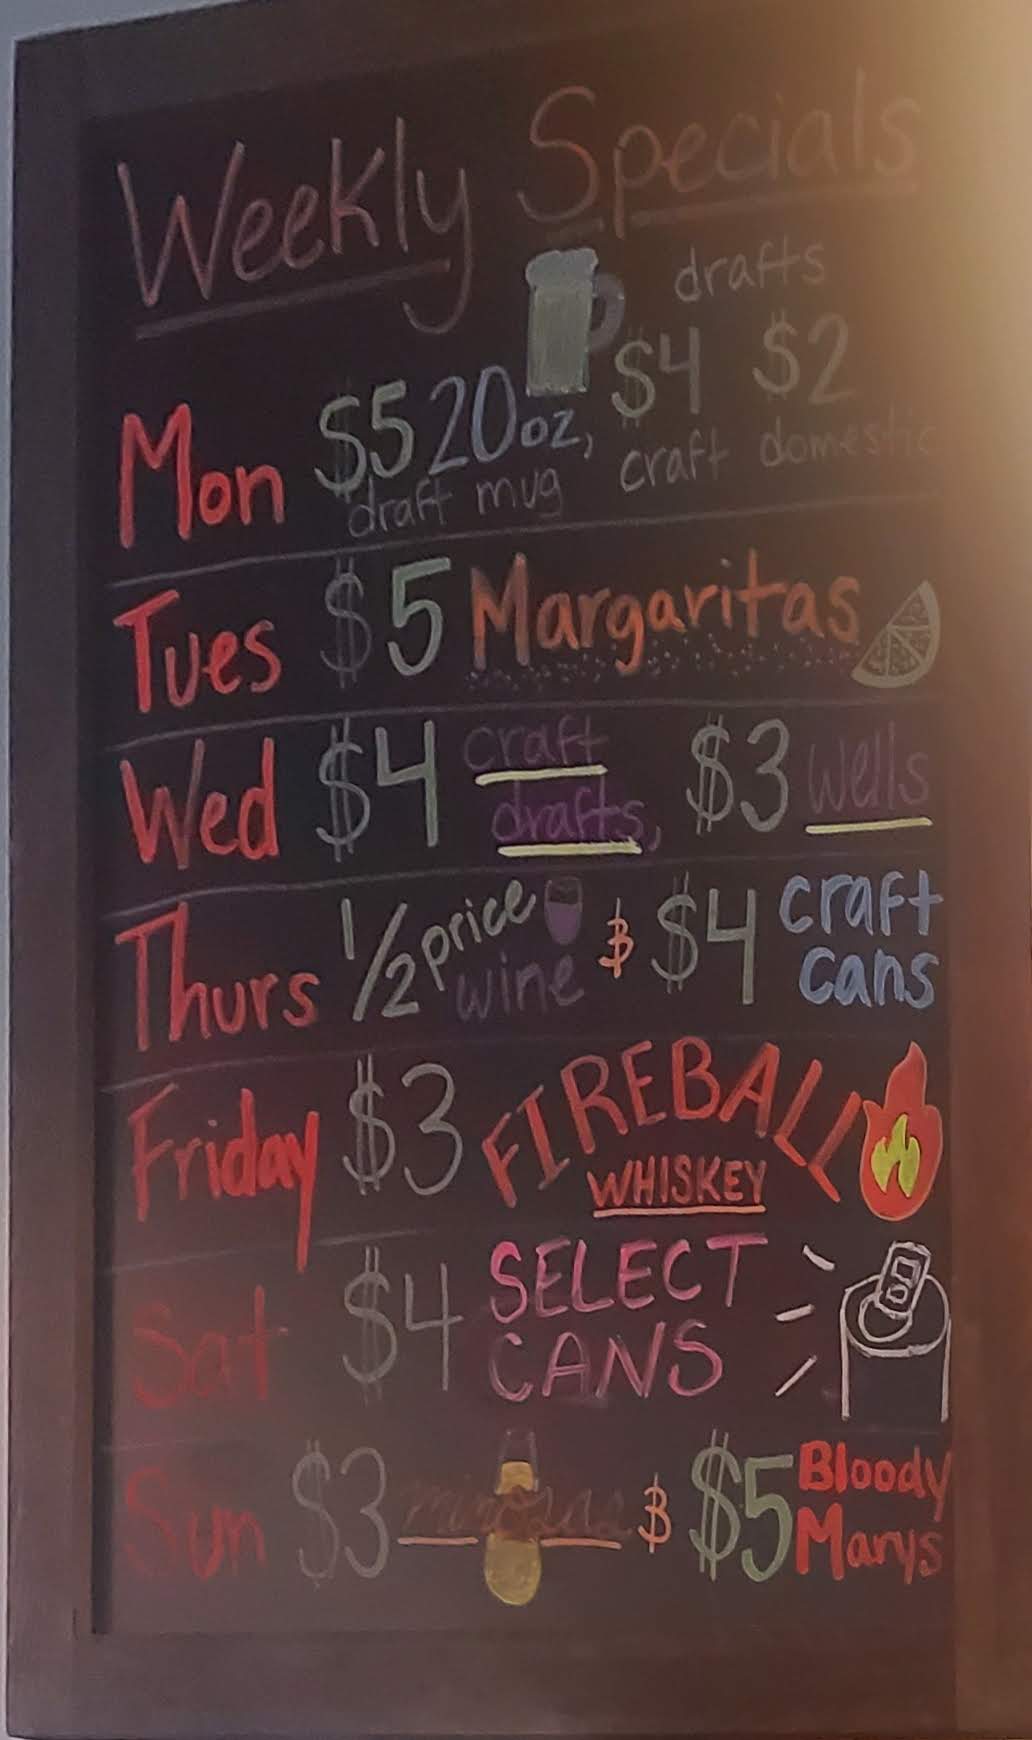 Weekly Specials
drafts
Mon $5 20oz, $4 $2
draft mug craft domestic
Tues $5 Margaritas
Wed $4 craft drafts, $3 wells
Thurs 1/2 price wine & $4 craft cans
Friday $3 FIREBALL
WHISKEY
Sat $4 SELECT
CANS
Sun $3 mimosas & $5 Bloody
Marys